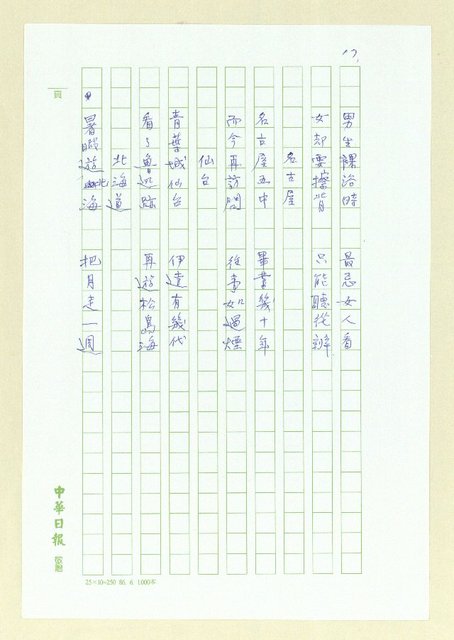 17.
男生裸浴時　最忌女人看
女却要擦背　只能聽從辦
名古屋
名古屋五中　畢業幾十年
而今再訪問　往事如過煙
仙台
青葉城仙台　伊達有幾代
看了魯迅跡　再遊松島海
北海道
暑暇遊北海　把月走一週
頁
中華日報
25×10=250 86. 6. 1,000本